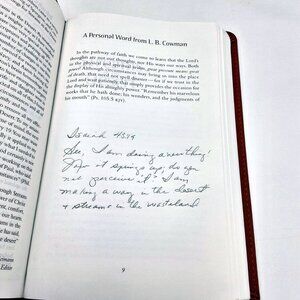 A Personal Word from L. B. Cowman
In the pathway of faith, we come to learn that the Lord's
thoughts are not our thoughts, nor His ways our ways. Both
in the physical and spiritual realm, great pressure means great
power! Although circumstances may bring us into the place
of death, that need not spell disaster — for if we trust in the
Lord and wait patiently, that simply provides the occasion for
the display of His almighty power. "Remember his marvelous
works he hath done; his wonders, and the judgments of
his mouth" (Ps. 105:5 KJV).
Isaiah 43:19
See, I am doing a new thing!
Now it springs up; do you
not perceive it? I am
making a way in the desert
& streams in the wasteland
9